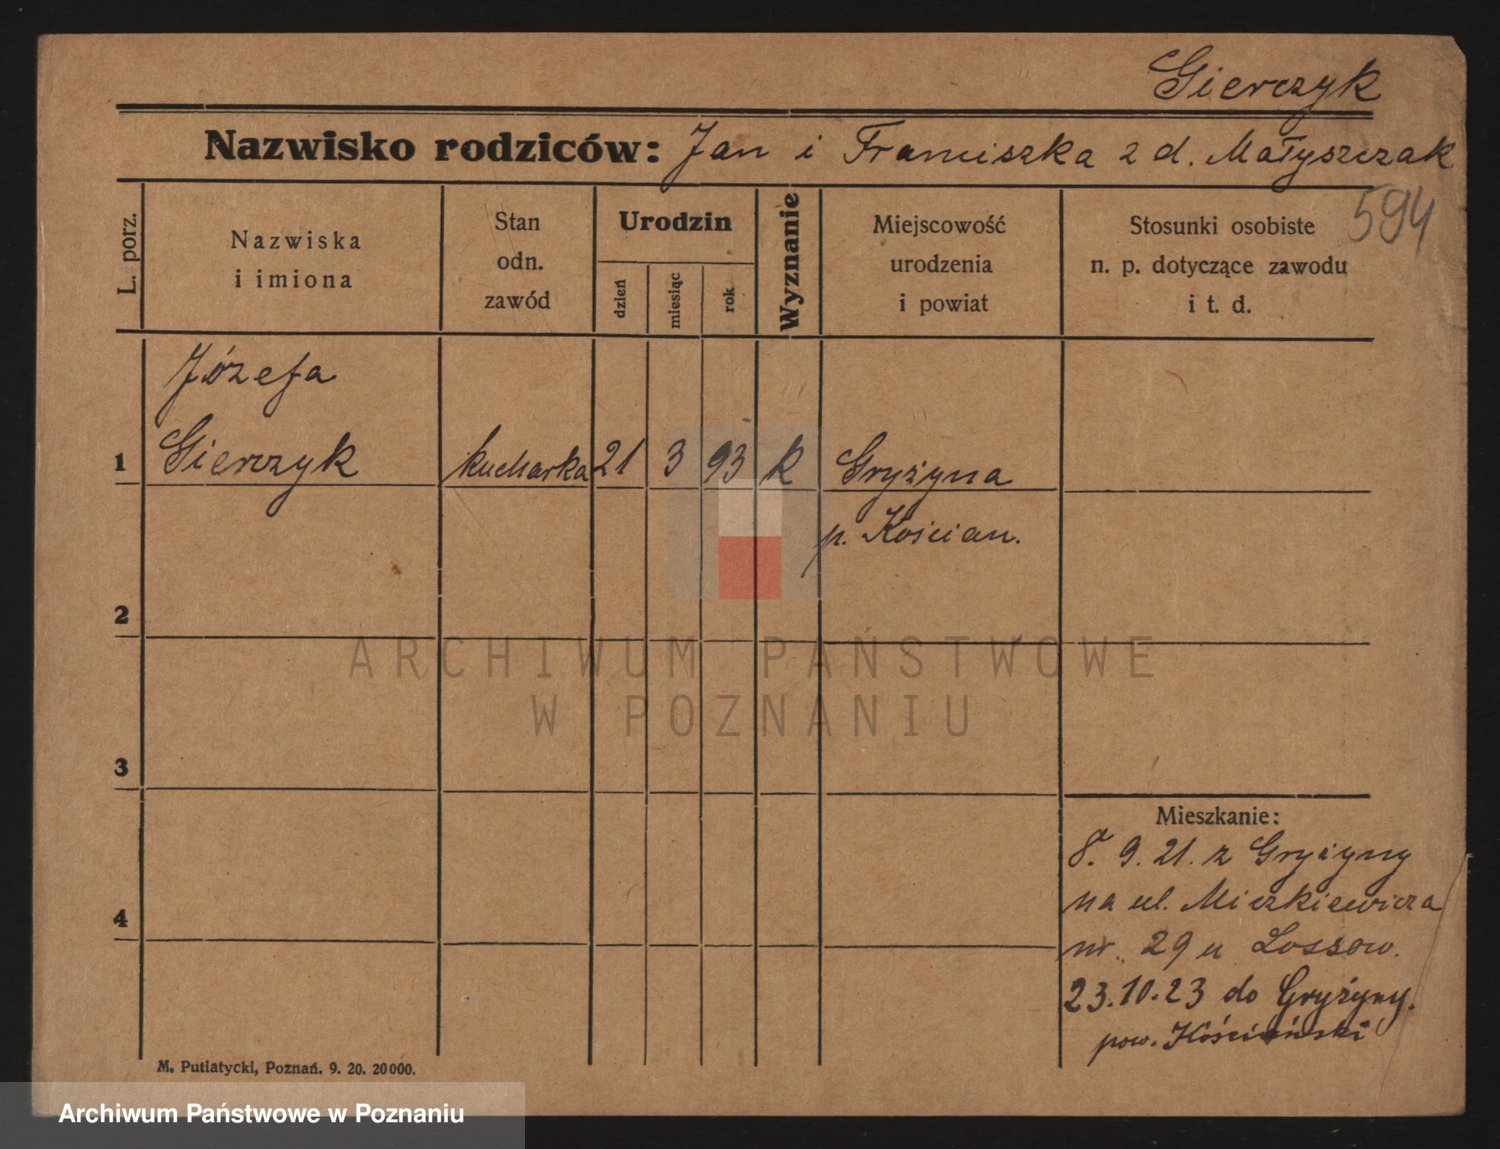 Gierczyk
Nazwisko rodziców: Jan i Franciszka z d. Małyszczak
594
L. porz.
Nazwiska
i imiona
Stan
odn.
zawód
Urodzin
dzień
miesiąc
rok
Wyznanie
Miejscowość
urodzenia
i powiat
Stosunki osobiste
n. p. dotyczące zawodu
i t. d.
Józefa
1 Gierczyk kucharka 21 3 93 k Gryżyna
p. Kościan.
2
3
4
ARCHIWUM PAŃSTWOWE
W POZNANIU
Mieszkanie:
8. 9. 21. z Gryżyny
na ul. Mickiewicza
nr. 29 u Lossow.
23.10.23 do Gryżyny.
pow. Kościański
M. Putiatycki, Poznań. 9. 20. 20000.
Archiwum Państwowe w Poznaniu